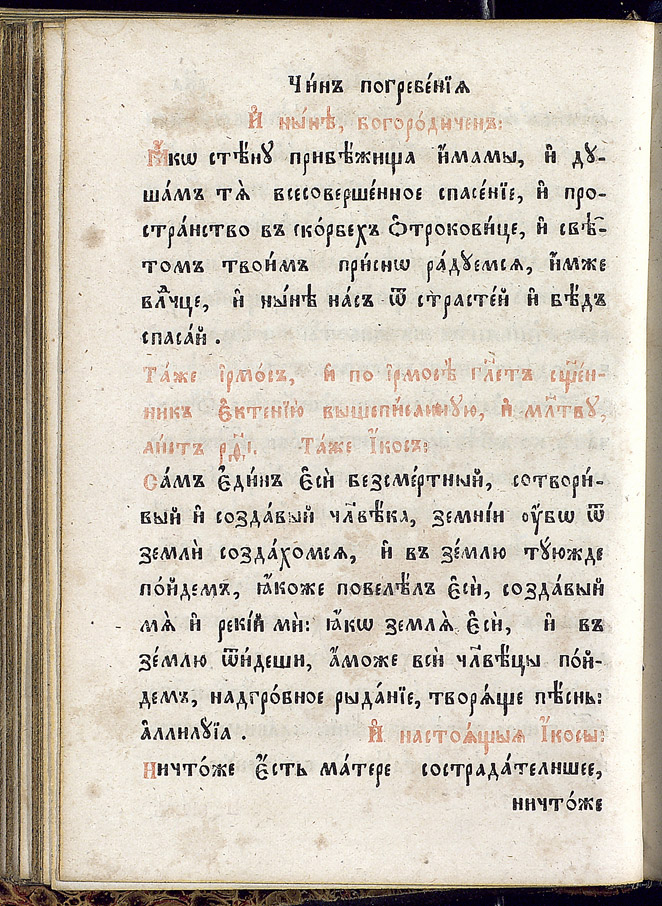 Чи́нъ погребе́нїѧ
И҆ ны́нѣ, богоро́диченъ:
Ꙗ҆́кѡ стѣ́нꙋ прибѣ́жища и҆́мамы, и҆ дꙋ-
ша́мъ тѧ̀ всесоверше́нное спасе́нїе, и҆ про-
стра́нство въ ско́рбехъ Ѻ҆трокови́це, и҆ свѣ́-
томъ твои́мъ при́снѡ ра́дꙋемсѧ, и҆́мже
влⷣчце, и҆ ны́нѣ на́съ ѿ страсте́й и҆ бѣ́дъ
спаса́й .
Та́же і҆рмо́съ, и҆ по і҆рмосѣ̀ гл҃етъ сщ҃е́н-
никъ Є҆ктенїю̀ вышепи́саннꙋю, и҆ мл҃твꙋ,
ли́стъ рд҃і. Та́же І҆́косъ:
Са́мъ є҆ди́нъ є҆сѝ безсме́ртный, сотвори́-
вый и҆ созда́вый чл҃вѣ́ка, земні́и ᲂу҆́бѡ ѿ
землѝ созда́хомсѧ, и҆ въ зе́млю тꙋ́южде
по́йдемъ, ꙗ҆́коже повелѣ́лъ є҆сѝ, созда́вый
мѧ̀ и҆ реки́й мѝ: ꙗ҆́кѡ землѧ̀ є҆сѝ, и҆ въ
зе́млю ѿи́деши, а҆́може всѝ чл҃вѣ́цы по́й-
демъ, надгро́бное рыда́нїе, творѧ́ще пѣ́снь:
а҆ллилꙋ́їа . И҆ настоѧ́щыѧ І҆́косы:
Ничто́же є҆́сть ма́тере сострада́телншее,
ничто́же